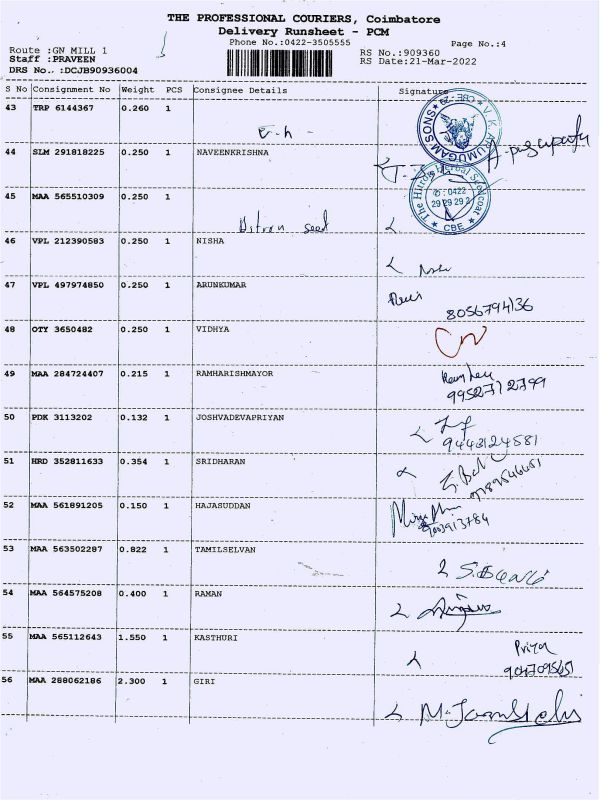 THE PROFESSIONAL COURIERS, Coimbatore
Delivery Runsheet - PCM
Phone No.:0422-3505555
Page No.:4
Route :GN MILL 1
RS No.:909360
Staff :PRAVEEN
RS Date:21-Mar-2022
DRS No. :DCJB90936004
S No Consignment No Weight PCS Consignee Details Signature
43 TRP 6144367 0.260 1
V.K. ARUMUGAM SONS
CBE
44 SLM 291818225 0.250 1 NAVEENKRISHNA
45 MAA 565510309 0.250 1
seed
The Hitro's Herbal Seelcoat
✆ : 0422
29 29 29 2
★ CBE ★
46 VPL 212390583 0.250 1 NISHA
47 VPL 497974850 0.250 1 ARUNKUMAR
8056794136
48 OTY 3650482 0.250 1 VIDHYA
49 MAA 284724407 0.215 1 RAMHARISHMAYOR
9952712799
50 PDK 3113202 0.132 1 JOSHVADEVAPRIYAN
9443124581
51 HRD 352811633 0.354 1 SRIDHARAN
52 MAA 561891205 0.150 1 HAJASUDDAN
53 MAA 563502287 0.822 1 TAMILSELVAN
54 MAA 564575208 0.400 1 RAMAN
55 MAA 565112643 1.550 1 KASTHURI
Priya
56 MAA 288062186 2.300 1 GIRI